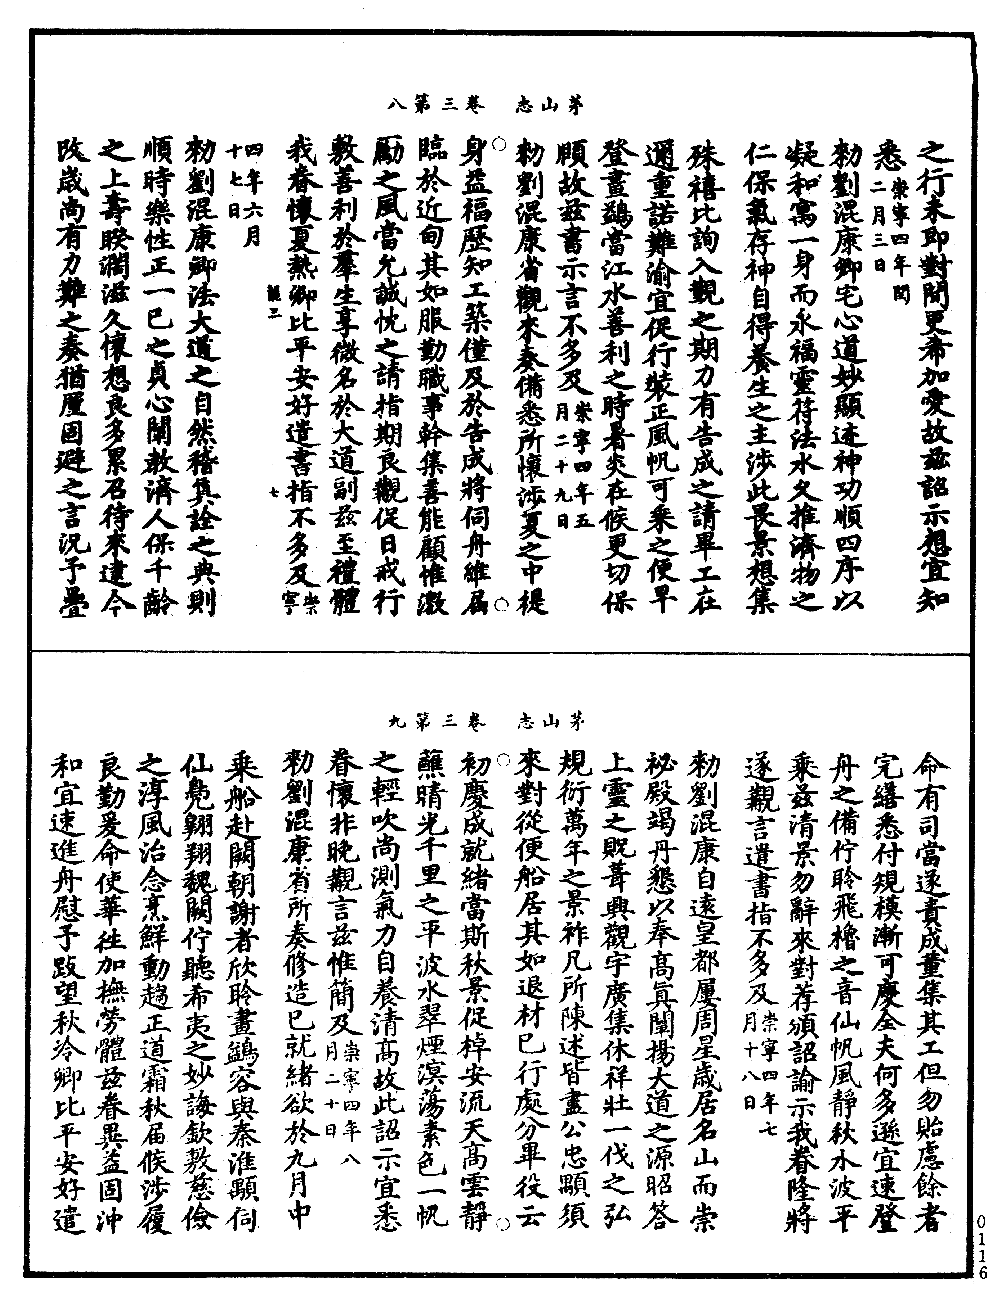 茅山志　卷三第八
之行未即對間更希加愛故茲詔示想宜知
悉崇寧四年閏二月三日
勑劉混康卿宅心道妙顯迹神功順四序以
凝和寓一身而永福靈符法水久推濟物之
仁保氣存神自得養生之主涉此畏景想集
殊禧比詢入覲之期力有告成之請畢工在
邇重諾難渝宜促行裝正風帆可乘之便早
登畫鷁當江水善利之時暑炎在候更切保
頤故茲書示言不多及崇寧四年五月二十九日
勑劉混康省觀來奏備悉所懷涉夏之中禔
身益福歷知工築僅及於告成將伺舟維屆
臨於近甸其如服勤職事幹集善能顧惟激
勵之風當允誠忱之請指期良覿促日戒行
敷善利於羣生享徽名於大道副茲至禮體
我眷懷夏熱卿比平安好遣書指不多及崇寧
四年六月十七日
勑劉混康卿法大道之自然稽真詮之典則
順時樂性正一已之貞心闡教濟人保千齡
之上壽睽濶滋久懷想良多累召待來逮今
改歲尚有力難之奏猶厪固避之言況予疊
龍三
七
茅山志　卷三第九
命有司當遂責成董集其工但勿貽慮餘者
完繕悉付規模漸可慶全夫何多遜宜速登
舟之備佇聆飛櫓之音仙帆風靜秋水波平
乘茲清景勿辭來對荐頒詔諭示我眷隆將
遂覯言遣書指不多及崇寧四年七月十八日
勑劉混康自遠皇都屢周星歲居名山而崇
祕殿竭丹懇以奉高真闡揚大道之源昭答
上靈之貺葺興觀宇廣集休祥壯一代之弘
規衍萬年之景祚凡所陳述皆盡公忠顒須
來對從便船居其如退材已行處分畢役云
初慶成就緒當斯秋景促棹安流天高雲靜
蘸晴光千里之平波水翠煙溟蕩素色一帆
之輕吹尚測氣力自養清高故此詔示宜悉
眷懷非晚覯言茲惟簡及崇寧四年八月二十日
勑劉混康省所奏修造已就緒欲於九月中
乘船赴闕朝謝者欣聆畫鷁容與秦淮顒伺
仙鳧翱翔魏闕佇聽希夷之妙誨欽敷慈儉
之淳風治念烹鮮動趨正道霜秋屆候涉履
良勤爰命使華往加撫勞體茲眷異益固沖
和宜速進舟慰予跂望秋冷卿比平安好遣
0116